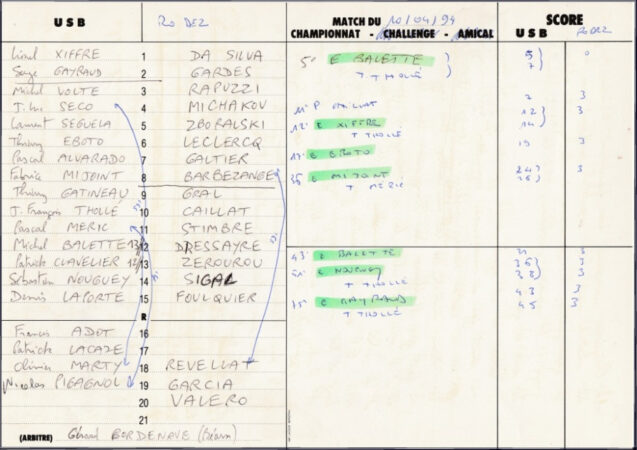 U S B RODEZ
Lionel XIFFRE 1 DA SILVA
Serge GAYRAUD 2 GARDES
Michel VOLTE 3 RAPUZZI
J. Luc SECO 4 MICHAKOV
Laurent SEGUELA 5 ZBORALSKI
Thierry EBOTO 6 LECLERCQ
Pascal ALVARADO 7 GALTIER
Fabrice MIJOINT 8 BARBEZANGE
Thierry GATINEAU 9 GRAL
J. François THOLLÉ 10 CAILLAT
Pascal MERIC 11 STIMBRE
Michel BALETTE 12 DRESSAYRE
Patrick CLAVELIER 13 ZEROUROU
Sébastien NOUGUEY 14 SIGAL
Denis LAPORTE 15 FOULQUIER
R
Francis ADOT 16
Patrick LACAZE 17
Olivier MARTY 18 REVELLAT
Nicolas PIGAGNOL 19 GARCIA
20 VALERO
21
(ARBITRE) Gérard BORDENAVE (Béarn)
MATCH DU 10/04/94
CHAMPIONNAT - CHALLENGE - AMICAL
SCORE
U S B RODEZ
5' E BALETTE 5 0
T THOLLÉ 7
7 3
11' P CAILLAT 12 3
12' E XIFFRE 14
T THOLLÉ
E EBOTO 19 3
E MIJOINT 24 3
T MERIC 26
43' E BALETTE 31 3
E NOUGUEY 36 3
T THOLLÉ 38
43 3
75' E GAYRAUD 45 3
T THOLLÉ